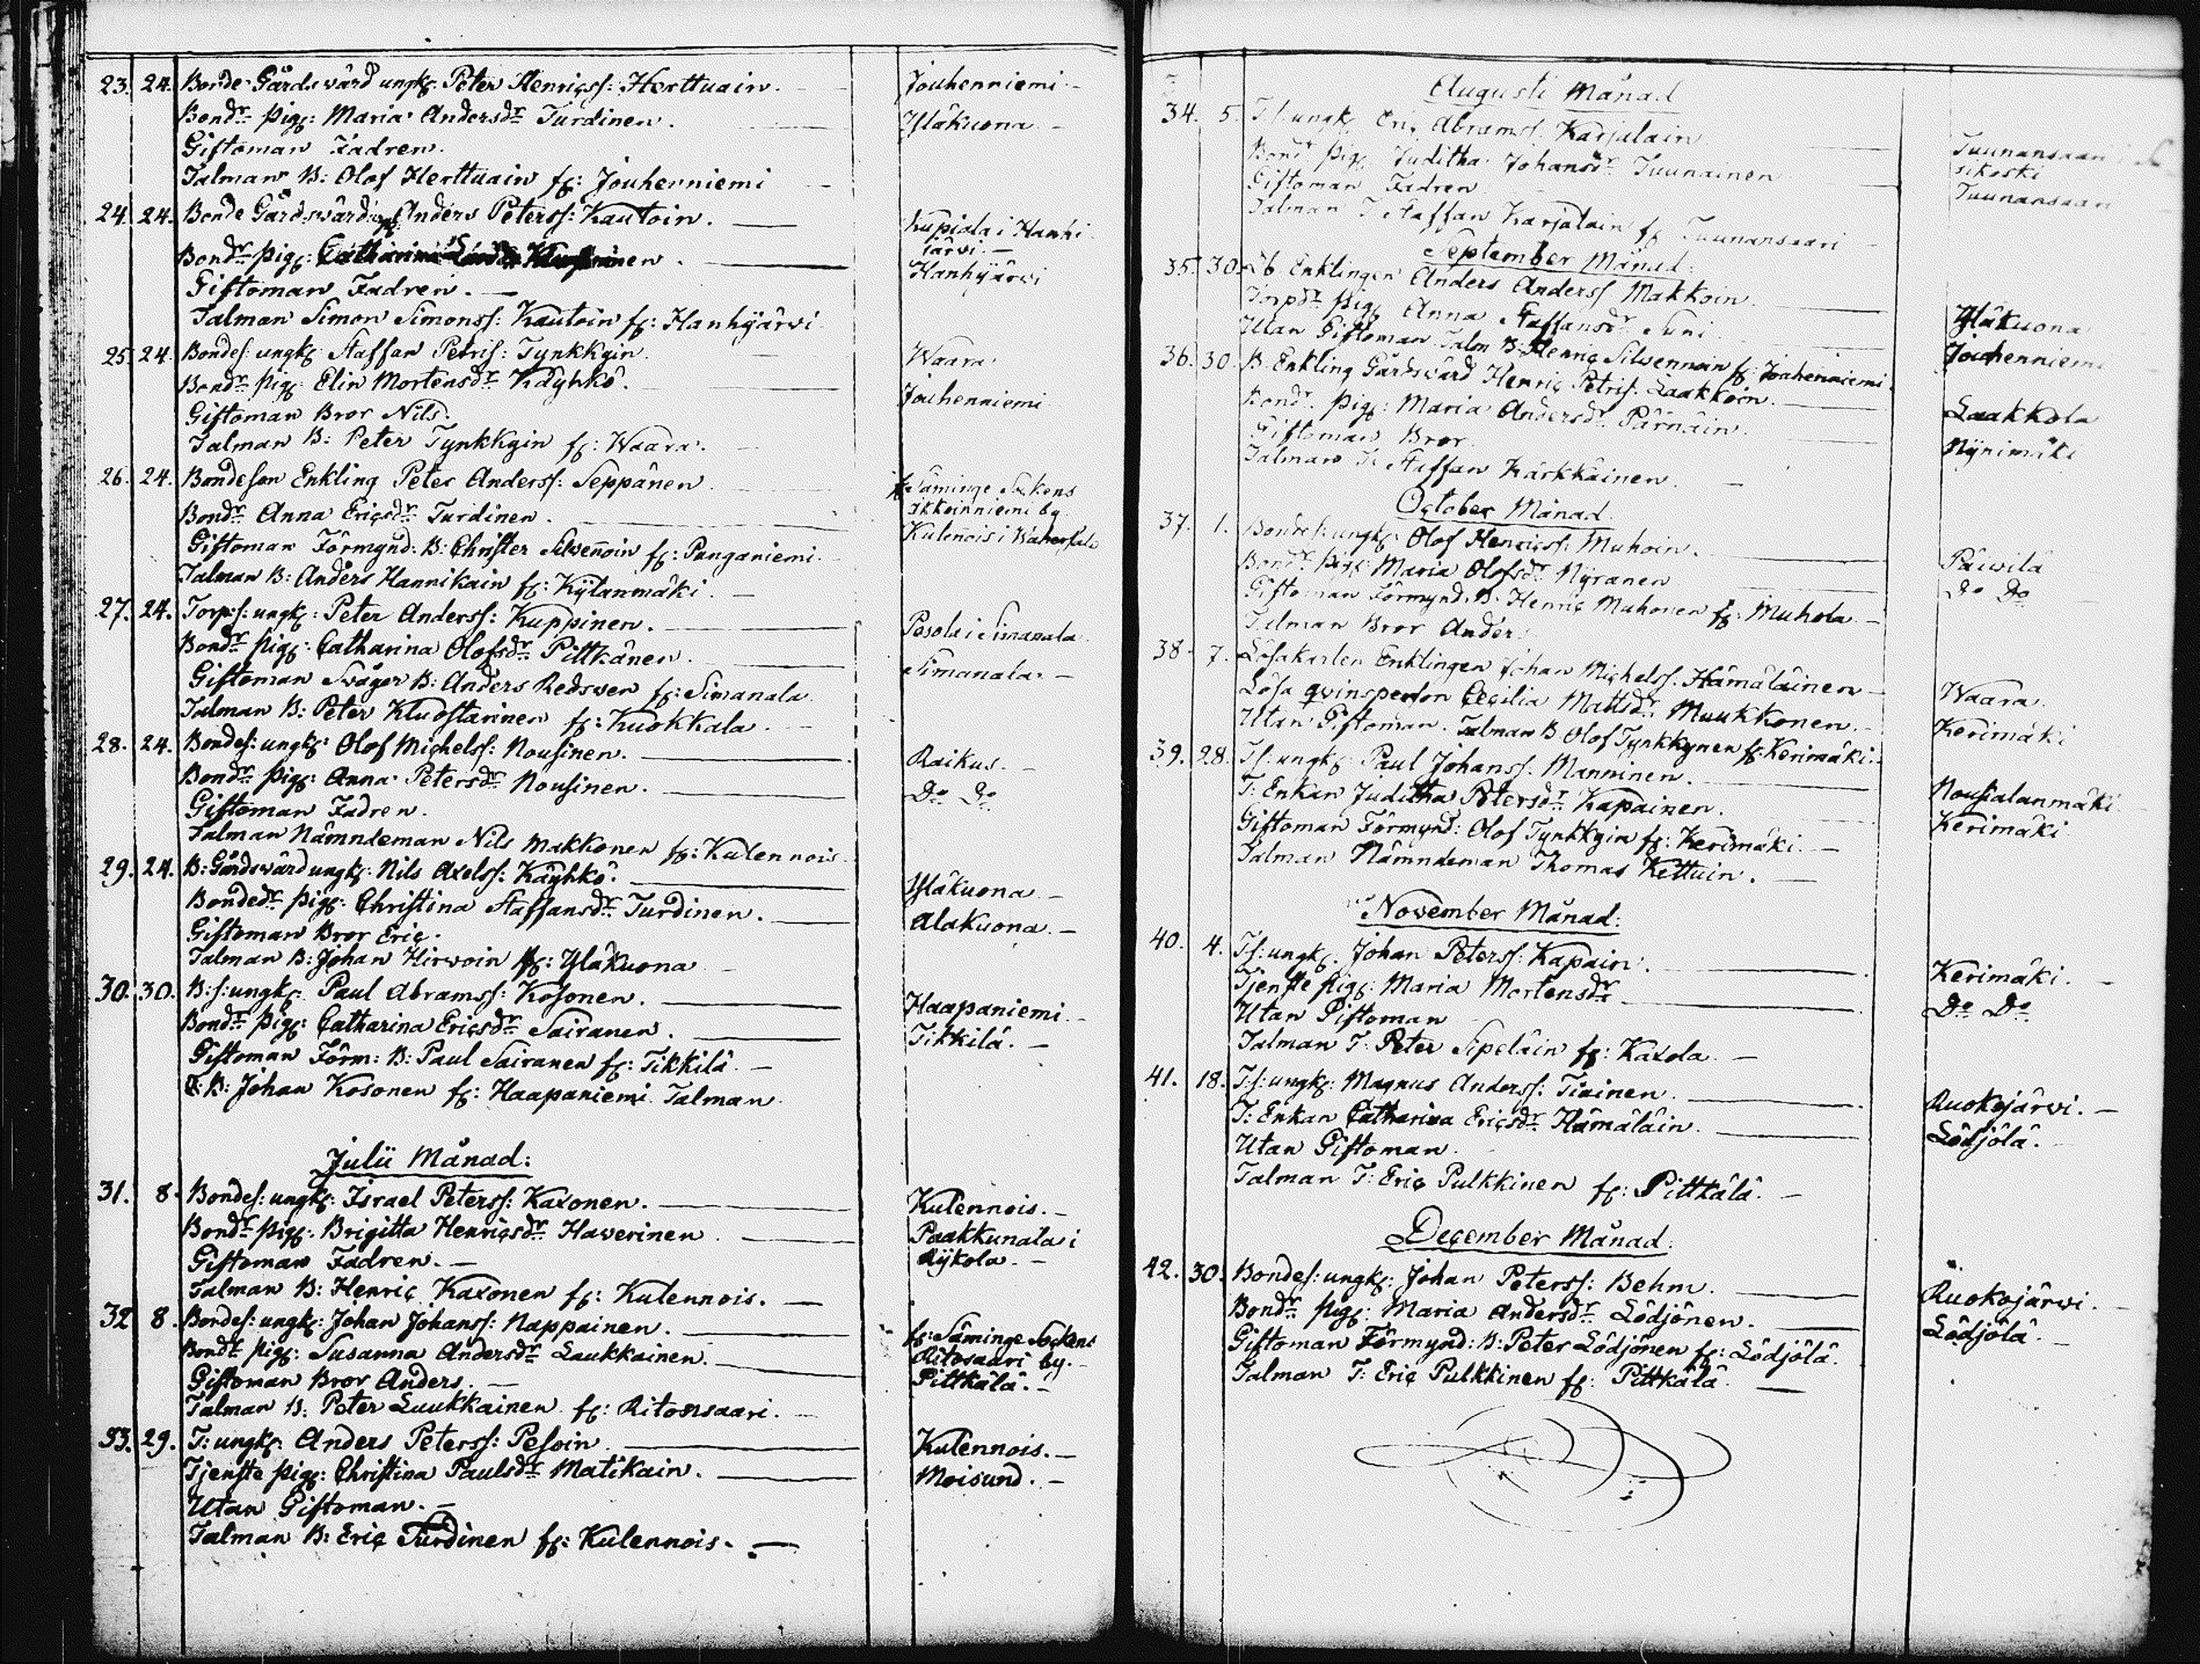 23. 24. Bonde Gårdswård ungk: Peter Henricss: Herttuain. Jouhenniemi
Bondr pig: Maria Andersdr Turdinen. Yläkuona
Giftoman Fadren.
Talman B: Olof Herttuain fr: Jouhenniemi
24. 24. Bonde Gårdswård Anders Peterss: Kautoin. Kupiala i Hanhi
järwi
Bondr pig: Catharina Hanhijärwi
Giftoman Fadren.
Talman Simon Simonss: Kautoin fr: Hanhijärwi
25. 24. Bondes: ungk: Staffan Petris: Tynkkyin. Waara
Bondr pig: Elin Mortensdr Käyhkö. Jouhenniemi
Giftoman Bror Nils.
Talman B: Peter Tynkkyin fr: Waara.
26. 24. Bondeson Enkling Peter Anderss: Seppänen fr Säminge Sokens
Ikkoinniemi by.
Bondr Anna Ericsdr Turdinen. Kulennois i
Giftoman Förmynd: B: Christer Silwenoin fr: Punganiemi
Talman B: Anders Hannikain fr: Kylänmäki.
27. 24. Torp:s: ungk: Peter Anderss: Kuppinen. Pesola i Simanala
Bondr pig: Catharina Olofsdr Pittkänen. Simanala
Giftoman Swåger B: Anders Redswen fr: Simanala
Talman B: Peter Kluostarinen fr: Kuokkala
28. 24. Bondes: ungk: Olof Michelss: Nousinen. Raikus.
Bondr pig: Anna Petersdr Nousinen. Do Do
Giftoman Fadren.
Talman Nämndeman Nils Makkonen fr: Kulennois
29. 24. B: Gårdswård ungk: Nils Axelss: Käyhkö. Yläkuona
Bondedr pig: Christina Staffansdr Turdinen. Alakuona.
Giftoman Bror Eric.
Talman B: Johan Hirwoin fr: Yläkuona
30. 30. B:s: ungk: Paul Abramss: Kosonen. Haapaniemi
Bondr pig: Catharina Ericsdr Sairanen. Tikkilä.
Giftoman Förm: B: Paul Sairanen fr: Tikkilä.
B: Johan Kosonen fr: Haapaniemi Talman
Julii Månad:
31. 8. Bondes: ungk: Israel Peterss: Kaxonen. Kulennois.
Bondr pig: Brigitta Henricsdr Hawerinen Paakkunala i
Giftoman Fadren. Rykola.
Talman B: Henric Kaxonen fr: Kulennois.
32 8. Bondes: ungk: Johan Johanss: Nappainen. fr: Säminge Sockens
Bondr pig: Susanna Andersdr Laukkainen. Ritosaari by.
Giftoman Bror Anders. Pittkälä.
Talman B: Peter Luukkainen fr: Ritosaari.
33. 29. T: ungk: Anders Peterss: Pesoin Kulennois.
Tjenste pig: Christina Paulsdr Matikain. Moisund.
Utan Giftoman.
Talman B: Eric Turdinen fr: Kulennois.
Augusti Månad
34. 5. T:s: ungk: Eric Abramss: Karjalain Tuunansaari
Bondr pig: Juditha Johansdr Tuunainen Tuunansaari
Giftoman Fadren
Talman T: Staffan Karjalain fr Tuunansaari
September Månad:
35. 30. Enklingen Anders Anderss Makkoin Yläkuona
Torpdr pig Anna Staffansdr Suni Jouhenniemi
Utan Giftoman Talm B: Henric Silwennoin fr: Jouhenniemi
36. 30. B. Enkling Gårdswård Henric Petris: Laakkoin. Laakkola
Bondr. pig: Maria Andersdr Pärnäin Nyrimäki
Giftoman Bror
Talman T: Staffan Kärkkäinen
October Månad
37. 1. Bondes: ungk: Olof Henricss: Muhoin. Päiwilä
Bondr pig: Maria Olofsdr Nyranen Do Do
Giftoman Förmynd. B. Henric Muhonen fr: Muhola
Talman Bror Anders
38. 7. Lösakarlen Enklingen Johan Michelss: Hämäläinen Waara
Lösa qvinsperson Cecilia Mattsdr Muukkonen. Kerimäki
Utan Giftoman. Talman B Olof Tynkkynen fr: Kerimäki.
39. 28. T:s: ungk: Paul Johanss: Manninen. Nousialanmäki
T: Enkan Juditha Petersdr Kapainen. Kerimäki
Giftoman Förmynd: Olof Tynkkyin fr: Kerimäki.
Talman Nämndeman Thomas Kettuin.
November Månad:
40. 4. T:s: ungk: Johan Peterss: Kapain. Kerimäki.
Tjenste pig: Maria Mortensdr Do Do
Utan Giftoman
Talman T: Peter Sipeläin fr: Kaxola.
41. 18. T:s: ungk: Magnus Anderss: Tiainen. Ruokojärwi.
T: Enkan Catharina Ericsdr Hämäläin. Lödjölä.
Utan Giftoman.
Talman T: Eric Pulkkinen fr: Pittkälä.
December Månad:
42. 30. Bondes: ungk: Johan Peterss: Behm. Ruokojärwi.
Bondr pig: Maria Andersdr Lödjönen. Lödjölä.
Giftoman Förmynd: B: Peter Lödjönen fr: Lödjölä.
Talman T: Eric Pulkkinen fr: Pittkälä